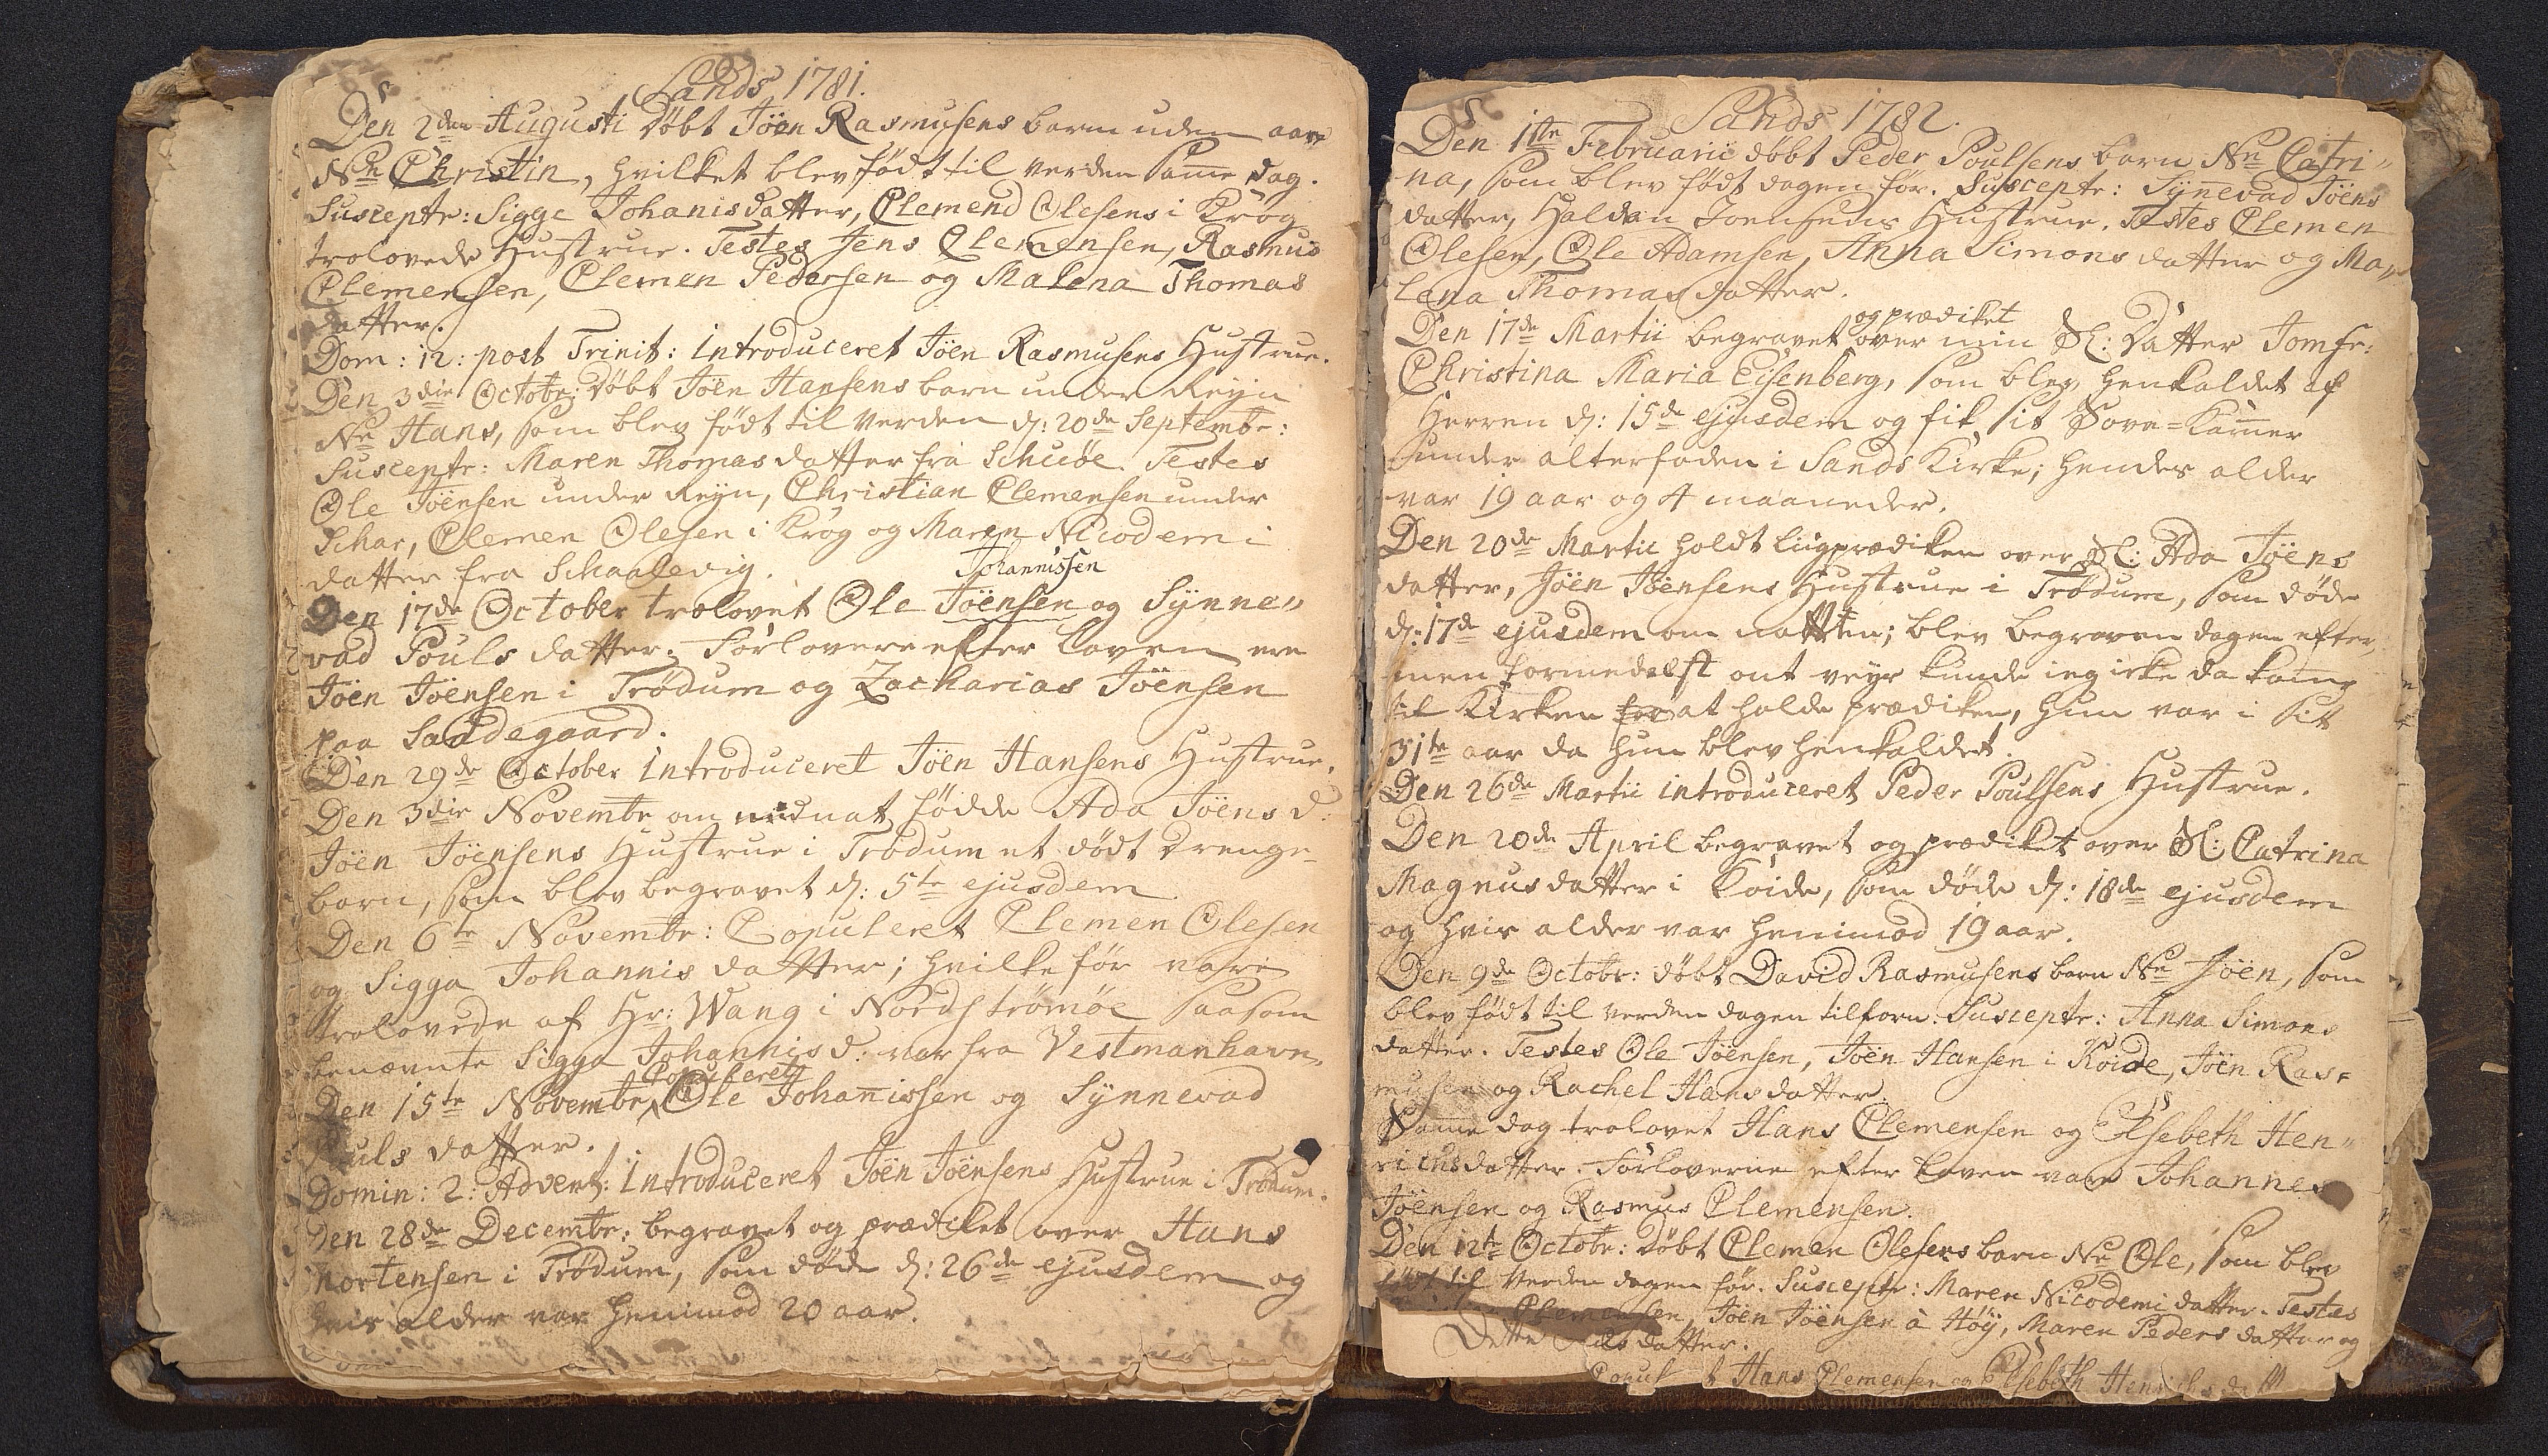 Sands 1781.
Den 2den Augusti døbt Jöen Rasmusens barn uden aare
Nn Christin, hvilket blev født til verden same dag.
Susceptr: Sigge Johanisdatter, Clemend Olesens i Krog
trolovede Hustrue. Testes Jens Clemensen, Rasmus
Clemensen, Clemen Pedersen og Malena Thomas
datter.
Dom: 12: post Trinit: Introduceret Jöen Rasmusens Hustrue.
Den 3die Octobr: døbt Jöen Hansens barn under Reyn
Nn Hans, som blev født til verden d: 20de Septembr:
Susceptr: Maren Thomasdatter fra Schuöe. Testes
Ole Jöensen under Reyn, Christian Clemensen under
Schar, Clemen Olesen i Krog og Maren Nicodemi
datter fra Schaalevig.
Johannissen
Den 17de October trolovet Ole Jöensen og Synne-
vad Pouls datter. Forlovere efter loven ere
Jöen Jöensen i Trödum og Zacharias Jöensen
paa Sandegaard.
Den 29de October Introduceret Jöen Hansens Hustrue.
Den 3die Novembr om midnat fødde Ada Jöens d:
Jöen Jöensens Hustrue i Trödum et dødt drenge-
barn, som blev begravet d: 5te ejusdem
Den 6te Novembr: Copuleret Clemen Olesen
og Sigga Johannis datter; hvilke før vare
trolovede af Hr: Wang i Nordströmöe saasom
benævnte Sigga Johannis d: var fra Vestmanhavn.
Copuleret
Den 15te Novembr Ole Johanissen og Synnevad
Pouls datter.
Domin: 2: Advent: Introduceret Jöen Jöensens Hustrue i Trödum.
Den 28de Decembr: begravet og prædiket over Hans
Mortensen i Trödum, som døde d: 26de ejusdem og
hvis alder var henimod 20 aar.
Sands 1782.
Den 1ste Februarii døbt Peder Poulsens barn Nn Catri-
na, som blev født dagen før. Susceptr: Synevad Jöens
datter, Haldan Joensens Hustrue. Testes Clemen
Olesen, Ole Adamsen, Anna Simons datter og Ma-
lena Thomasdatter.
og prædiket
Den 17de Martii begravet over min Sl: Datter Jomfr:
Christina Maria Eisenberg, som blev henkaldet af
Herren d: 15de ejusdem og fik sit Sove-Kamer
under alterfoden i Sands Kirke; hendes alder
var 19 aar og 4 maaneder.
Den 20de Martii holdt liigprædiken over Sl: Ada Jöens
datter, Jöen Jöensens Hustrue i Trödum, som døde
d: 17de ejusdem om natten; blev begraven dagen efter,
men formedelst ont veyr kunde ieg icke da kome
til Kirken for at holde prædiken, hun var i sit
31te aar da hun blev henkaldet.
Den 26de Martii introduceret Peder Poulsens Hustrue.
Den 20de April begravet og prædiket over Sl: Catrina
Magnusdatter i Koide, som døde d: 18de ejusdem
og hvis alder var henimod 19 aar.
Den 9de Octobr: døbt David Rasmusens barn Nn Jöen, som
blev født til verden dagen tilforn. Susceptr: Anna Simons
datter. Testes Ole Jöensen, Jöen Hansen i Koide, Jöen Ras-
musen og Rachel Hansdatter.
Same dag trolovet Hans Clemensen og Elsebeth Hen-
richsdatter. Forloverne efter loven vare Johannes
Jöensen og Rasmus Clemensen.
Den 12te Octobr: døbt Clemen Olesens barn Nn Ole, som blev
født til verden dagen før. Susceptr: Maren Nicodemi datter. Testes
Clemensen, Jöen Jöensen à Höy, Maren Peders datter og
Dette datter.
Copul t Hans Clemensen og Elsebeth Henrichsdatt